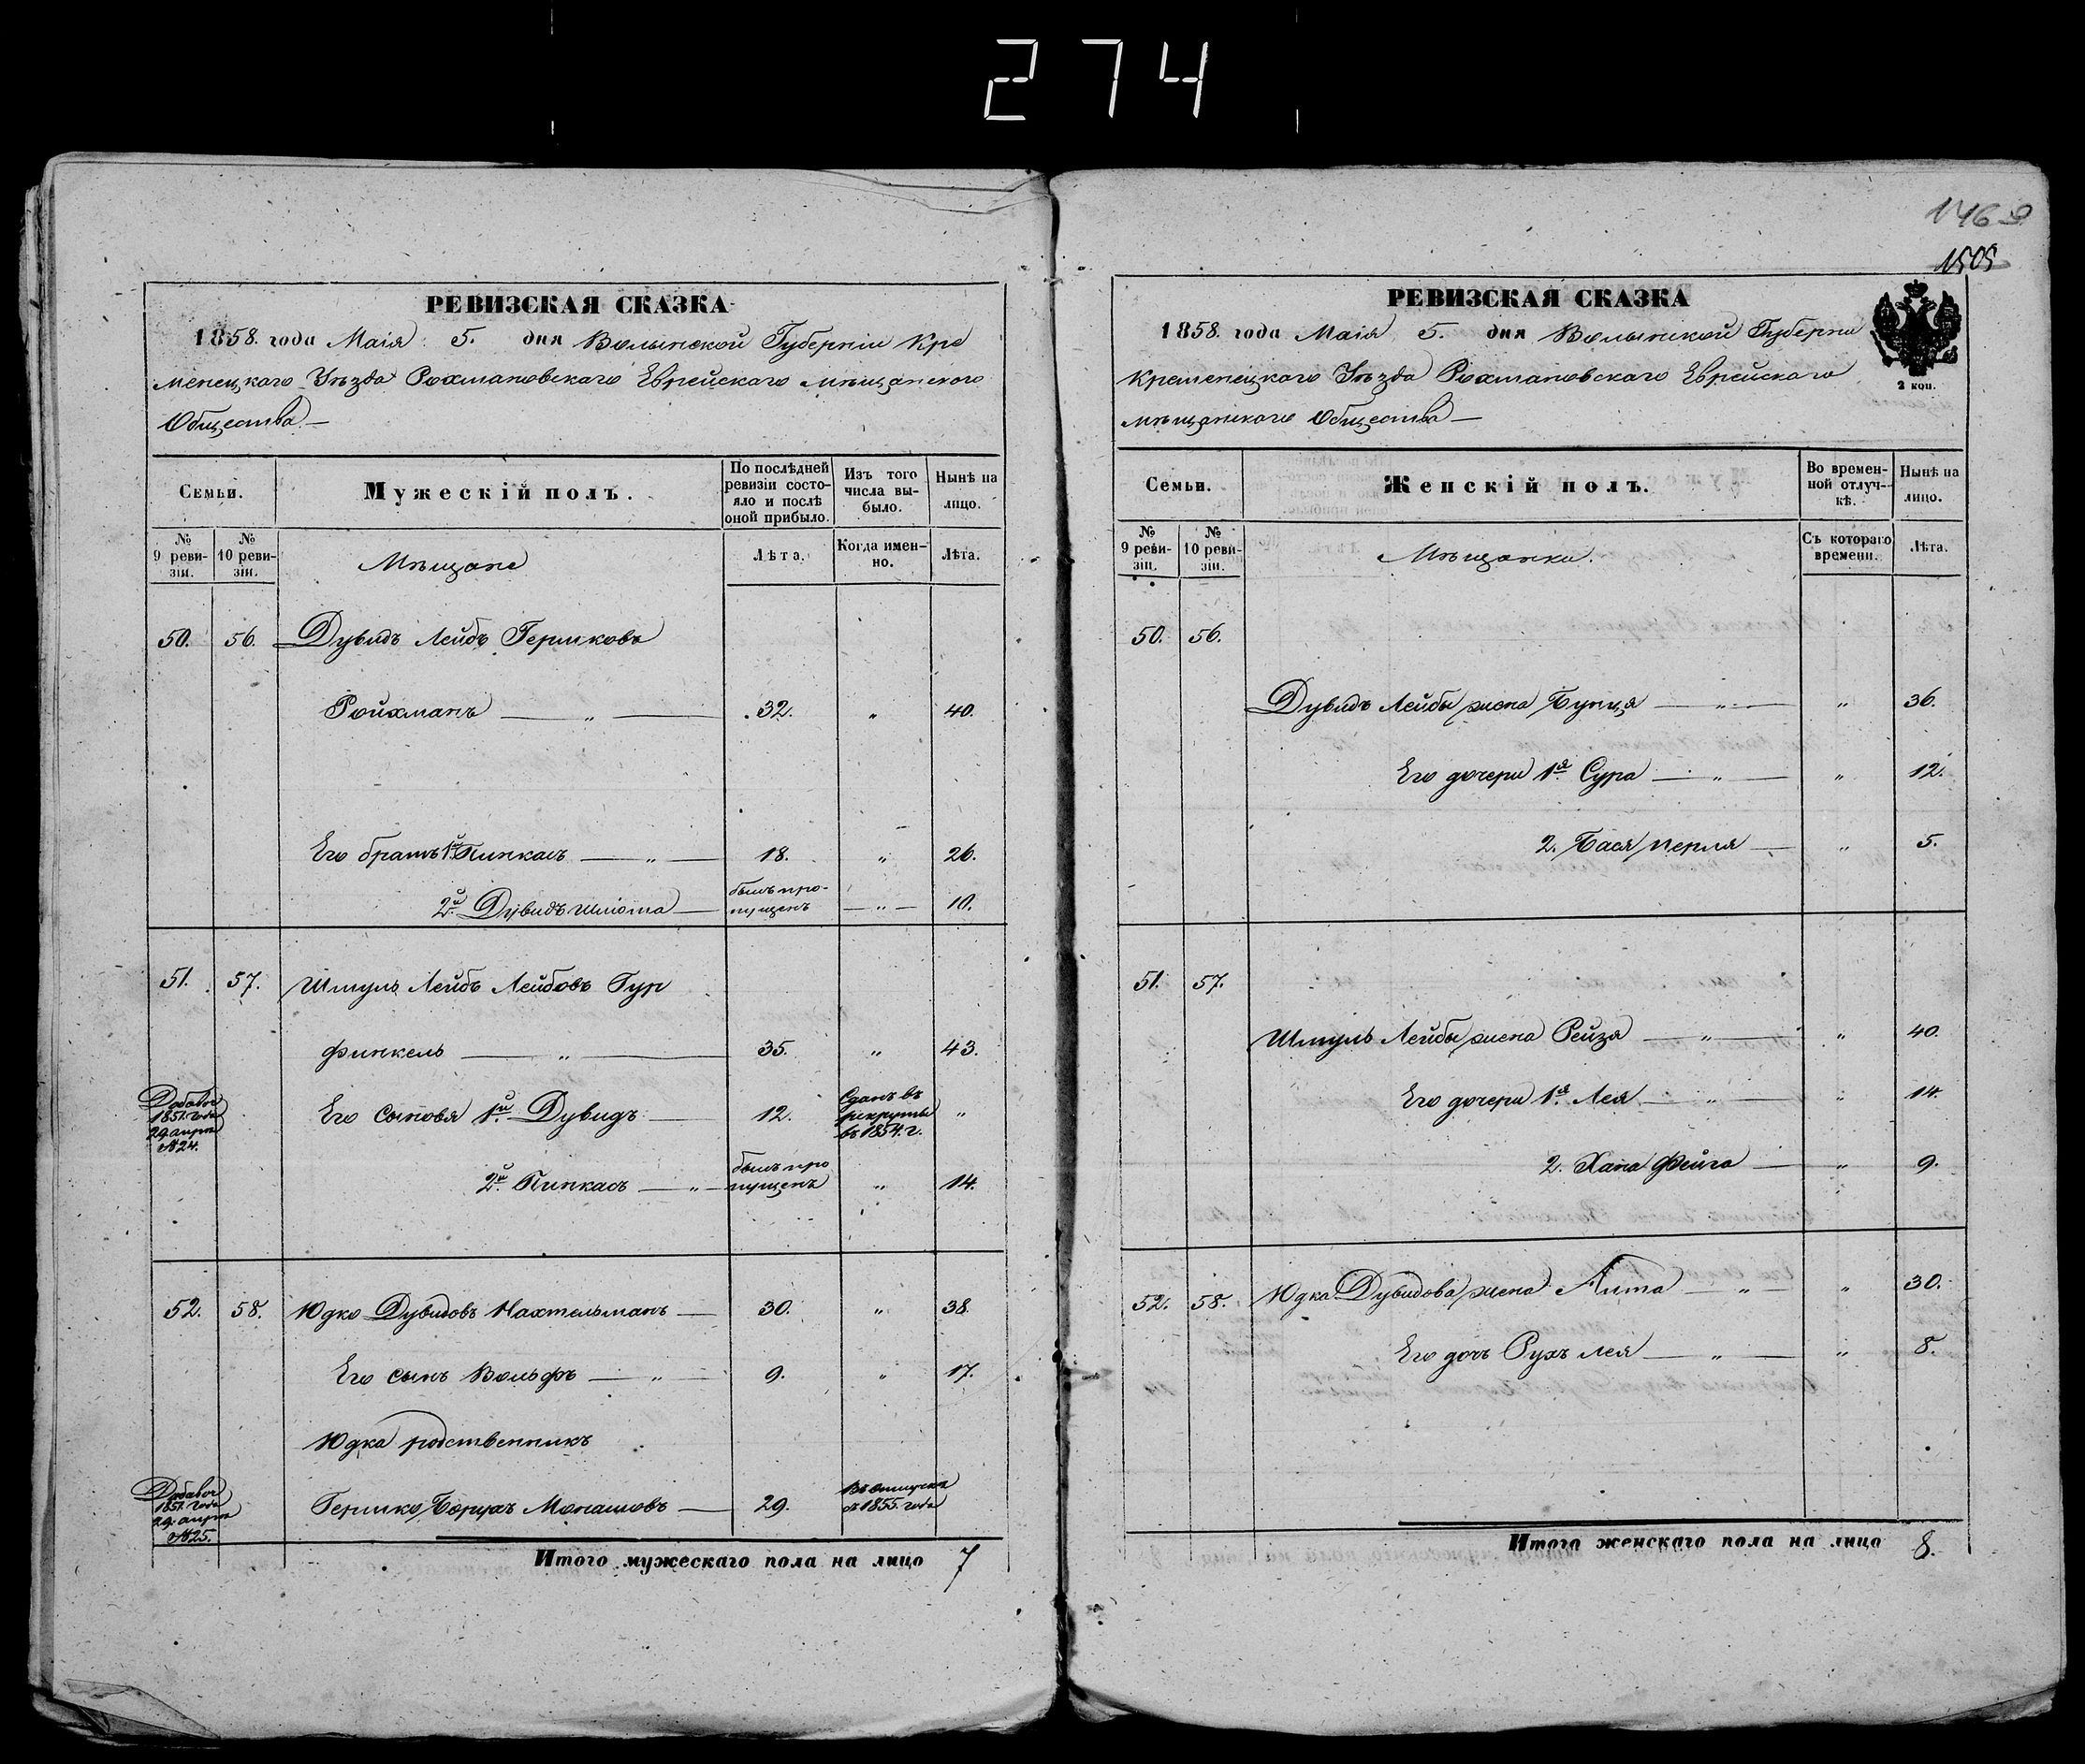 274
РЕВИЗСКАЯ СКАЗКА
1858. года Маія 5. дня Волынской Губерніи Кре
менецкаго Уѣзда Рохмановскаго Еврейскаго мѣщанского
Общества.—
Семьи.
Мужескій полъ.
По послѣдней ревизіи состо-
яло и послѣ
оной прибыло.
Изъ того
числа вы-
было.
Нынѣ на
лицо.
№
9 реви-
зіи.
№
10 реви-
зіи.
Мѣщане
Лѣта.
Когда имен-
но.
Лѣта.
50. 56. Дувидъ Лейбъ Гершковъ
Ройхманъ — „ — 32. „ 40.
Его братъ 1й Пинкасъ — „ — 18. „ 26.
2й Дувидъ Шлiома — былъ про-
пущенъ — „ — 10.
51. 57. Шмуль Лейбъ Лейбовъ Гур
финкель — „ — 35. „ 43.
Добавоч
1851. года
29 апрѣ
№ 24.
Его сыновья 1й Дувидъ — 12. Сданъ въ
рекруты
въ 1854. г. „
2й Пинкасъ — „ — былъ про
пущенъ „ 14.
52. 58. Юдко Дувидовъ Нахтельманъ — 30. „ 38
Его сынъ Вольфъ — „ — 9. „ 17.
Юдка родственникъ
Добавоч
1851. года
29. апрѣ
№ 25.
Гершко Борухъ Монашовъ — 29. съ 1855. года
Итого мужескаго пола на лицо 7
1469
1505
РЕВИЗСКАЯ СКАЗКА
1858. года Маія 5. дня Волынской Губерни
Кременецкаго Уѣзда Рохмановскаго Еврейскаго
мѣщанскаго Общества —
2 коп.
Семьи.
Женскій полъ.
Во времен-
ной отлуч-
кѣ.
Нынѣ на
лицо.
№
9 реви-
зіи.
№
10 реви-
зіи.
Мѣщанки.
Съ котораго
времени.
Лѣта.
50. 56.
Дувидъ Лейбы жена Бунця — „ — „ 36.
Его дочери 1я Сура — „ — „ 12.
2. Бася Перля — „ 5.
51. 57.
Шмуль Лейбы жена Рейзя — „ — „ 40.
Его дочери 1я Лея — „ — „ 14.
2. Хана Фейга — „ 9.
52. 58. Юдка Дувидова жена Алта — „ — „ 30.
Его дочь Рухъ Лея — „ — „ 8.
Итого женскаго пола на лицо 8.